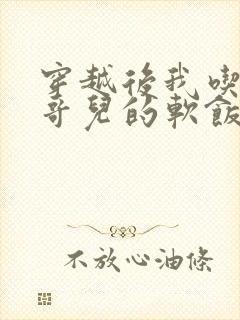 穿越後我喫
哥兒的軟飯
不放心油條